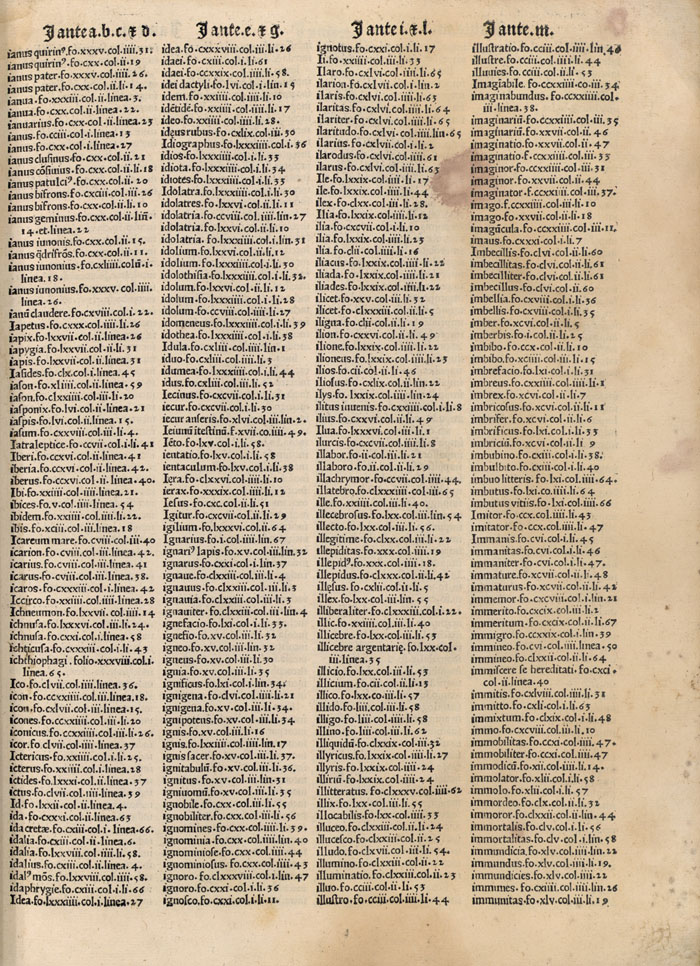 I ante a. b. c. & d.
ianus quirinꝰ.fo.xxxv.col.iiii.31.
ianus quirinꝰ.fo.cxx.col.ii.19
ianus pater.fo.xxxv.col.iiii.26.
ianus pater.fo.cxx.col.ii.li.14.
ianua.fo.xxxiiii.col.iii.linea.3.
ianua.fo.cxx.col.ii.linea.22.
ianuarius.fo.cxx.col.ii.linea.23
ianus.fo.cciii.col.i.linea.13
ianus.fo.cxx.col.i.linea.27
ianus clusinus fo.cxx.col.ii.21
ianus cōsiuius fo.cxx.col.ii.li.18
ianus patulciꝰ.fo.cxx.col.ii.20
ianus bifrons.fo.cxciii.col.iii.26
ianus bifrons.fo.cxx.col.ii.li.10
ianus geminus fo.cxx.col.ii.lin.
14.et.linea.22
ianus iunonis.fo.cxx.col.ii.15.
ianus q̄drifrōs.fo.cxx.col.ii.11.
ianus iunonius.fo.cxliiii.colū.i.
linea.18.
ianus iunonius.fo.xxxv.col.iiii.
linea.26.
ianū claudere.fo.cxviii.col.i.22.
Iapetus.fo.cxxx.col.iiii.li.26
iapix.fo.lxxvii.col.ii.linea.26
iapygia.fo.lxxvii.col.ii.31
iapis.fo.lxxvii.col.ii.linea.31
Iasides.fo.clx.col.i.linea.45
iason.fo.xl.iiii.col.ii.linea.59
iason.fo.clxxxiii.col.iii.li.20
iasponix.fo.lvi.col.ii.linea.21
iaspis.fo.lvi.col.ii.linea.15.
iasum.fo.cxxviii.col.iii.li.4.
Iatraleptice.fo.ccvii.col.i.li.41
Iberi.fo.ccxvi.col.ii.linea.41
iberia.fo.ccxvi.col.ii.linea.42.
iberus.fo.ccxvi.col.ii.linea.40.
Ibi.fo.xxiiii.col.iiii.linea.21.
ibices.fo.v.col.iiii.linea.54
ibidem.fo.xxiiii.col.iiii.li.22.
ibis.fo.xciii.col.iii.linea.18
Icareum mare.fo.cviii.col.iiii.40
icarion.fo.cviii.col.iiii.linea.42.
icarius.fo.cviii.col.iiii.linea.41
icarus.fo.cviii.col.iiii.linea.38.
icaros.fo.cxxxiiii.col.i.linea.42
Iccirco.fo.xxiiii.col.iiii.linea.28
Ichneumon.fo.lxxvii.col.iiii.14
ichnusa.fo.lxxvi.col.iiii.li.24.
ichnusa.fo.cxxi.col.i.linea.58
ichticusa.fo.cxxiii.col.i.li.43
ichthiophagi.folio.xxxviii.col.i.
linea.65.
Ico.fo.clvi.col.iiii.linea.36.
icon.fo.ccxxiiii.col.iii.linea.18.
icones.fo.ccxxiiii.col.iii.li.20
iconicus.fo.ccxxiiii.col.iii.li.26.
icor.fo.clvii.col.iiii.linea.37
Ictericus.fo.xxiiii.col.i.li.25.
icterus.fo.xxiiii.col.i.linea.28
ictides.fo.lxxi.col.i.linea.37
ictus.fo.clvii.col.iiii.linea.39
Id.fo.lxxi.col.ii.linea.4.
ida.fo.cxxi.col.i.linea.63
ida cretæ.fo.cxiii.col.i.linea.66.
idalia.fo.cxiii.col.ii.linea.6.
idalia.fo.lxxviii.col.iiii.58.
idalius.fo.cxiii.col.ii.linea.4.
idalꝰ mōs.fo.lxxviii.col.iiii.58.
idaphrygie.fo.cxiii.col.i.li.66
Idea.fo.lxxxiiii.col.i.linea.27
I ante. e. & g.
idea.fo.cxxxviii.col.iii.li.26
idaei.fo.cxiii.col.i.li.61
idaei.fo.ccxxix.col.iiii.li.58.
idei dactyli.fo.lvi.col.i.lin.15
idem.fo.xxiiii.col.iiii.li.10
idētidē.fo.xxiiii.col.iiii.li.17
ideo.fo.xxiiii.col.iiii.li.28.
ideus rubus.fo.cxlix.col.iii.30
Idiographus.fo.lxxxiiii.col.i.36
idios.fo.lxxxiiii.col.i.li.33
idiota.fo.lxxxiiii.col.i.li.34
idiotes.fo.lxxxiiii.col.i.li.33
Idolatra.fo.lxxxiiii.col.i.li.30
idolatres.fo.lxvi.col.ii.li.11
idolatria.fo.ccviii.col.iiii.lin.27
idolatria.fo.lxvi.col.ii.li.10
idolatria.fo.lxxxiiii.col.i.lin.31
idolium.fo.lxvi.col.ii.li.12
idolium.fo.lxxxiiii.col.i.li.30
idolothisia.fo.lxxxiiii.col.i.li.32.
idolum.fo.lxvi.col.ii.li.12
idolum.fo.lxxxiiii.col.i.li.28
idolum.fo.ccviii.col.iiii.li.27
idomeneus.fo.lxxxiiii.col.i.li.39
idothea.fo.lxxxiiii.col.i.li.38
Idula.fo.cxliii.col.iiii.lin.1
iduo.fo.cxliii.col.iiii.li.3
idumea.fo.lxxxiii.col.ii.li.44
idus.fo.cxliii.col.iii.li.52
Iecinus.fo.cxcvii.col.ii.li.31
iecur.fo.cxcvii.col.ii.li.30
iecur anseris.fo.xlvi.col.iii.lin.2.
Ieiunū itestinū.f.xvii.co.iiii.49.
Iēto.fo.lxv.col.i.li.58.
ientatio.fo.lxv.col.i.li.58
ientaculum.fo.lxv.col.i.li.38
Iera.fo.clxxvi.col.ii.li.10
ierax.fo.xxix.col.iii.li.12
Iesus.fo.cxc.col.ii.li.51
Igitur.fo.cxcvii.col.ii.li.29
igilium.fo.lxxvi.col.ii.li.64
Ignarius.fo.li.col.iiii.lin.67
ignariꝰ lapis.fo.xv.col.iii.lin.32
ignarus.fo.cxxi.col.i.li.37
ignaue.fo.clxxiii.col.iii.li.4
ignauus.fo.clxxiii.col.iii.li.1
ignauia.fo.clxxiii.col.iii.li.3
ignauiter.fo.clxxiii.col.iii.lin.4
ignefacio.fo.lxi.col.i.li.33.
ignesio.fo.xv.col.iii.li.32
igneo.fo.xv.col.iii.li.32
igneus.fo.xv.col.iii.li.30
ignia.fo.xv.col.iii.li.35
ignificus.fo.lxi.col.i.lin.34
ignigena.fo.clvii.col.iii.li.21
ignigena.fo.xv.col.iii.li.34.
ignipotens.fo.xv.col.iii.li.34
ignis.fo.xv.col.iii.li.16
ignis.fo.lxxiiii.col.iiii.lin.17
ignis sacer.fo.xv.col.iii.li.37.
ignitabulū.fo.xv.col.iii.li.36.
ignitus.fo.xv.col.iii.lin.31
igniuomū.fo.xv.col.iii.li.35
ignobile.fo.cxx.col.iii.li.55
ignobiliter.fo.cxx.col.iii.li.56
ignomines.fo.cxx.col.iiii.li.39.
ignominia.fo.cxx.col.iiii.lin.40
ignominiose.fo.cxx.col.iiii.44
ignominiosus.fo.cxx.col.iiii.43
ignoro.fo.clxxviii.col.i.lin.47
ignoro.fo.cxxi.col.i.li.36
ignosco.fo.cxxi.col.i.li.11.
I ante. i. & l.
ignotus.fo.cxxi.col.i.li.17
Ii.fo.xxiiii.col.iii.li.33
Ilaro.fo.cxlvi.col.iiii.li.65
ilarion.fo.clxvii.col.i.lin.2
ilaris.fo.cxlvi.col.iiii.li.63
ilaritas.fo.cxlvi.col.iiii.li.64
ilariter.fo.cxlvi.col.iiii.li.65
ilaritudo.fo.cxlvi.col.iiii.lin.65
ilarius.fo.clxvii.col.i.li.2
ilarodus.fo.cxlvi.col.iiii.61
ilarus.fo.cxlvi.col.iiii.li.63
Ile.fo.lxxix.col.iiii.li.17
ile.fo.lxxix.col.iiii.li.44
ilex.fo.clxx.col.iii.li.28.
Ilia.fo.lxxix.col.iiii.li.12
ilia.fo.lxxix.col.iiii.li.10
ilia.fo.lxxix.col.iiii.li.23
ilia.fo.clii.col.iiii.li.16
iliacus.fo.lxxix.col.iiii.li.22
iliada.fo.lxxix.col.iiii.li.21
iliades.fo.lxxix.col.iiii.li.22
ilicet.fo.xxv.col.iii.li.32
ilicet.fo.clxxxiii.col.iii.li.35
iligna.fo.clii.col.iii.li.19
ilion.fo.cxxvii.col.ii.li.49
ilione.fo.lxxix.col.iiii.li.22
ilioneus.fo.lxxix.col.iiii.li.23
ilios.fo.cii.col.ii.li.46
iliosus.fo.cxlix.col.ii.lin.22
ilys.fo.lxxix.col.iiii.lin.24
ilitus iuuenis.fo.cxxiiii.col.i.li.8
ilius.fo.cxxvii.col.ii.li.49
Illua.fo.lxxvi.col.iii.li.1
ilurcis.fo.cxcvii.col.ii.li.8
illabor.fo.ii.col.iii.li.21
illaboro.fo.ii.col.ii.li.29
illachrymor.fo.ccvii.col.iiii.44.
illatebro.fo.clxxxiiii.col.iii.65
ille.fo.xxiiii.col.iii.li.40.
illecebrosus.fo.lxx.col.iii.lin.54
illecto.fo.lxx.col.iii.li.56.
illegitime.fo.clxx.col.iii.li.22
illepiditas.fo.xxx.col.iiii.19
illepidꝰ.fo.xxx.col.iiii.li.18.
illepidus.fo.clxxx.col.ii.li.42
illęsus.fo.clxix.col.iii.li.5
illex.fo.lxx.col.iii.lin.55
illiberaliter.fo.clxxxiii.col.i.22.
illic.fo.xxiiii.col.iii.li.40
illicebre.fo.lxx.col.iii.li.53
illicebre argentarię.fo.lxx.col.
iii.linea.35
illicio.fo.lxx.col.iii.li.53
illicium.fo.cii.col.ii.li.13
illico.fo.lxx.co.iii.li.57
illido.fo.liii.col.iii.li.58
illigo.fo.liii.col.iiii.li.58
illino.fo.liii.col.iii.li.62
illiquidū.fo.clxxix.col.iii.32
illyricus.fo.lxxix.col.iiii.li.27
illyris.fo.lxxix.col.iiii.24
illiriū.fo.lxxix.col.iiii.24
illitteratus.fo.clxxxv.col.iiii.62
illix.fo.lxx.col.iii.li.55
illocabilis.fo.lxx.col.iii.li.55
illuceo.fo.cxxiii.col.ii.li.24
illucesco.fo.cxxiii.col.ii.li.25
illudo.fo.clxvii.col.ii.li.54.
illumino.fo.clxiii.col.ii.22
illuminatio.fo.clxxiii.col.ii.23
illuo.fo.ccii.col.iii.li.53
illustro.fo.cciii.col.iiii.li.44
I ante. m.
illustratio.fo.cciii.col.iiii.lin.46
illustre.fo.ccii.col.iiii.li.44
illuuies.fo.ccii.col.ii.li.53
Imagiabile.fo.ccxxiiii.co.iii.34
imaginabundus.fo.ccxxiiii.col.
iii.linea.38.
imaginariū.fo.ccxxiiii.col.iii.35
imaginariū.fo.xxvii.col.ii.46
imaginatio.fo.xxvii.col.ii.47
imaginatio.f.ccxxiiii.col.iii.33
imaginor.fo.ccxxiiii.col.iii.31
imaginor.fo.xxvii.col.ii.44
imaginator.f.ccxxiiii.col.iii.37.
imago.f.ccxxiiii.col.iii.li.10
imago.fo.xxvii.col.ii.li.18
imagūcula.fo.ccxxiiii.col.iii.11.
imaus.fo.cxxi.col.i.li.7
Imbecillis.fo.clvi.col.ii.li.60
imbecillitas.fo.clvi.col.ii.li.61
imbecilliter.fo.clvi.col.ii.li.61
imbecillus.fo.clvi.col.ii.60
imbellia.fo.cxviii.col.iii.li.36
imbellis.fo.cxviii.col.iii.li.35
imber.fo.xcvi.col.ii.li.5
imberbis.fo.i.col.ii.li.25
imbibo.fo.ccx.col.ii.li.10
imbibo.fo.xciiii.col.iii.li.15
imbrefacio.fo.lxi.col.i.li.31
imbreus.fo.cxxiiii.col.iiii.li.1
imbrex.fo.xcvi.col.ii.li.7
imbricosus.fo.xcvi.col.ii.li.11
imbrifer.fo.xcvi.col.ii.li.6
imbrificus.fo.lxi.col.i.li.33.
imbriciū.fo.xcvi.col.ii.li.9
imbubino.fo.cxiii.col.i.38.
imbulbito.fo.cxiii.col.i.li.40
imbuo litteris.fo.lxi.col.iiii.64.
imbutus.fo.lxi.co.iiii.li.64
imbutus vitiis.fo.lxi.col.iiii.66
Imitor.fo.ccx.col.iiii.li.43
imitator.fo.ccx.col.iiii.li.47
Immanis.fo.cvi.col.i.li.45
immanitas.fo.cvi.col.i.li.46
immaniter.fo.cvi.col.i.li.47.
immature.fo.xcvii.col.ii.li.48
immaturus.fo.xcvii.col.ii.li.42
immemor.fo.cxcviii.col.iii.li.21
immerito.fo.cxcix.col.iii.li.2
immeritum.fo.cxcviii.col.iiii.li.67
immigro.fo.ccxxix.col.i.lin.39
immineo.fo.cvi.col.iiii.linea.50
immineo.fo.clxxii.col.ii.li.64
immiscere se hereditati.fo.cxci
col.ii.linea.40
immitis.fo.cxlviii.col.iiii.li.31
immitto.fo.cxli.col.i.li.63
immixtum.fo.clxix.col.i.li.48
immo.fo.cxcviii.col.iii.li.10
immobilitas.fo.ccxi.col.iiii.47.
immobiliter.fo.ccxi.col.iiii.47
immodicū.fo.xii.col.ii.li.14.
immolator.fo.xlii.col.i.li.58
immolo.fo.xlii.col.i.li.57
immordeo.fo.clxx.col.ii.li.32
immoror.fo.clxxii.col.ii.lin.44
immortalis.fo.clv.col.i.li.56
immortalitas.fo.clv.col.i.lin.58
immundicia.fo.xlv.col.iii.li.22
immundus.fo.xlv.col.iii.li.19.
immundicies.fo.xlv.col.iii.22
immunes.fo.cxiiii.col.iiii.lin.26
immunitas.fo.xlv.col.iii.li.19